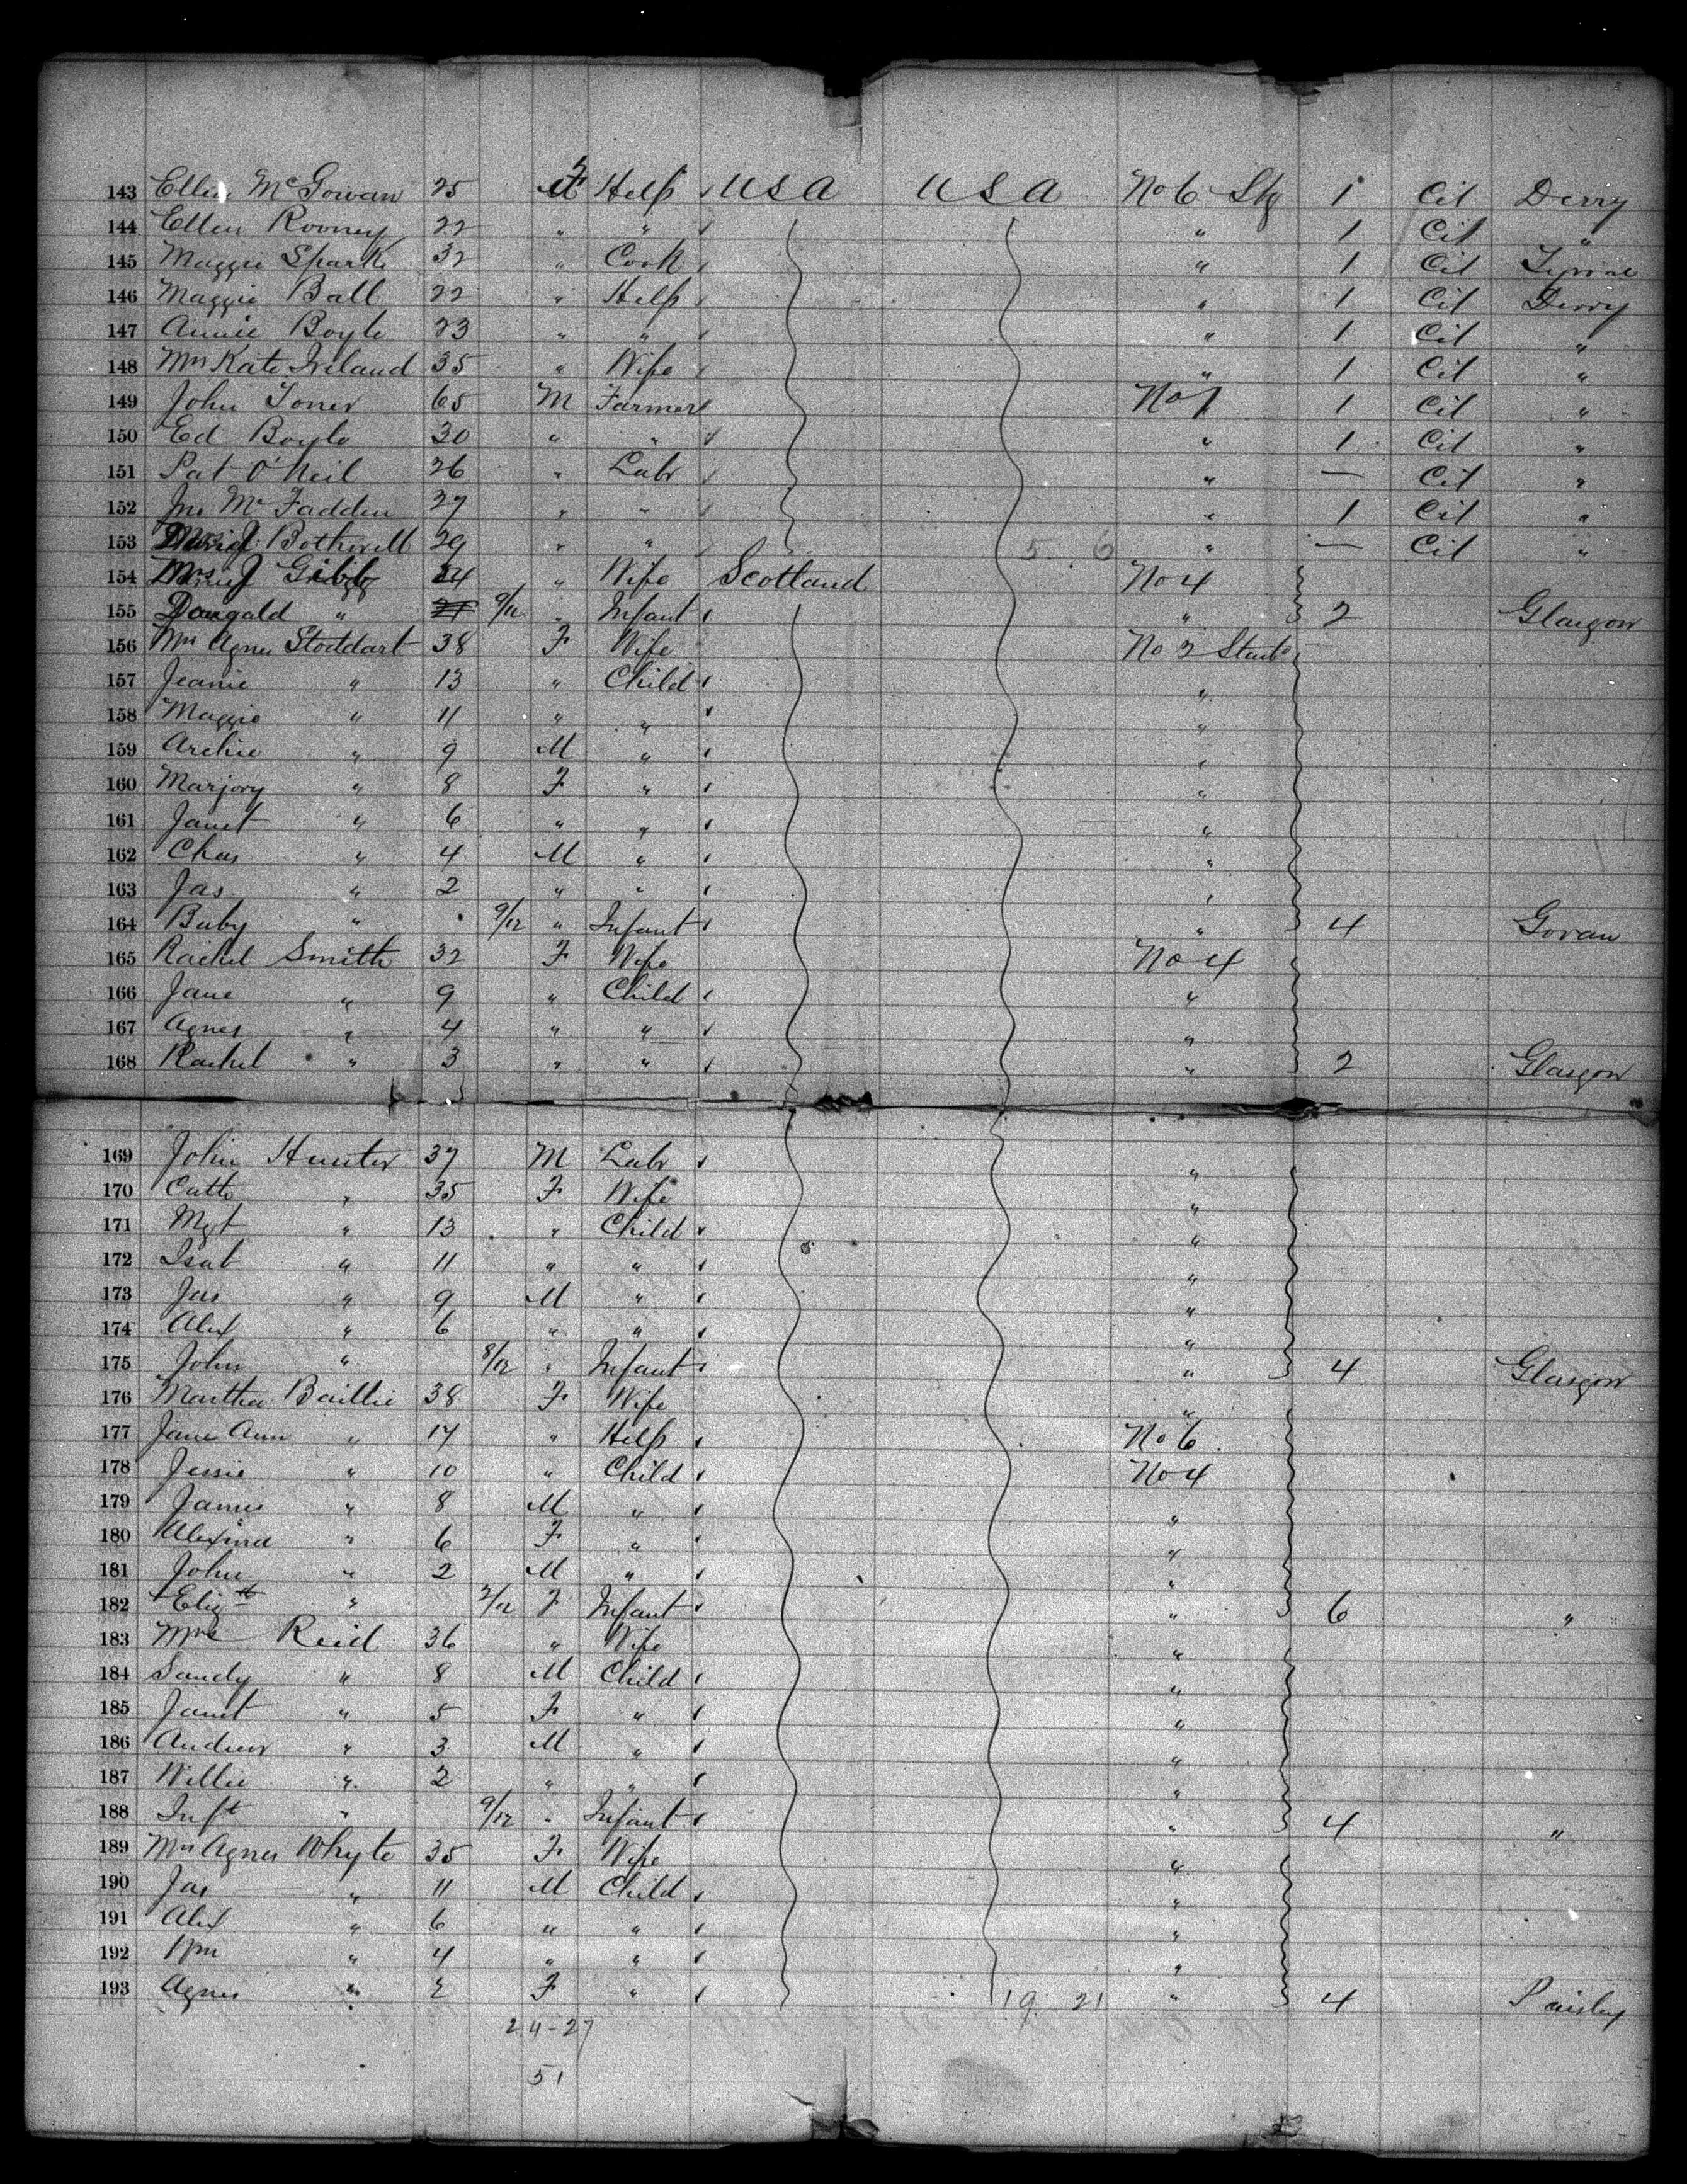 143 Ellen McGowan 25 F Help USA USA No 6 Stg 1 Cit Derry
144 Ellen Rooney 22 " " " 1 Cit "
145 Maggie Spark 32 " Cook " 1 Cit Tyrone
146 Maggie Ball 22 " Help " 1 Cit Derry
147 Annie Boyle 23 " " " 1 Cit "
148 Mrs Kate Ireland 35 " Wife " 1 Cit "
149 John Toner 65 M Farmer No 1 1 Cit "
150 Ed Boyle 30 " " " 1 Cit "
151 Pat O'Neil 26 " Labr " — Cit "
152 Jno McFadden 27 " " " 1 Cit "
153 Bothwell 29 " " 5. 6 " — Cit "
154 Mrs J Gibb 24 " Wife Scotland No 4
155 Dougald " 9/12 " Infant " 2 Glasgow
156 Mrs Agnes Stoddart 38 F Wife No 2 Starb
157 Jeanie " 13 " Child "
158 Maggie " 11 " " "
159 Archie " 9 M " "
160 Marjory " 8 F " "
161 Janet " 6 " " "
162 Chas " 4 M " "
163 Jas " 2 " " "
164 Baby " 9/12 " Infant " 4 Govan
165 Rachel Smith 32 F Wife No 4
166 Jane " 9 " Child "
167 Agnes " 4 " " "
168 Rachel " 3 " " " 2 Glasgow
169 John Hunter 37 M Labr "
170 Cath " 35 F Wife "
171 Mgt " 13 " Child "
172 Isab " 11 " " "
173 Jas " 9 M " "
174 Alex " 6 " " "
175 John " 8/12 " Infant " 4 Glasgow
176 Martha Baillie 38 F Wife "
177 Jane Ann " 17 " Help No 6
178 Jessie " 10 " Child No 4
179 James " 8 M " "
180 Alexina " 6 F " "
181 John " 2 M " "
182 Elizth " 2/12 F Infant " 6 "
183 Mrs Reid 36 " Wife "
184 Sandy " 8 M Child "
185 Janet " 5 F " "
186 Andrew " 3 M " "
187 Willie " 2 " " "
188 Inft " 9/12 " Infant " 4 "
189 Mrs Agnes Whyte 35 F Wife "
190 Jas " 11 M Child "
191 Alex " 6 " " "
192 Wm " 4 " " "
193 Agnes " 2 F " 19. 21 " 4 Paisley
24-27
51